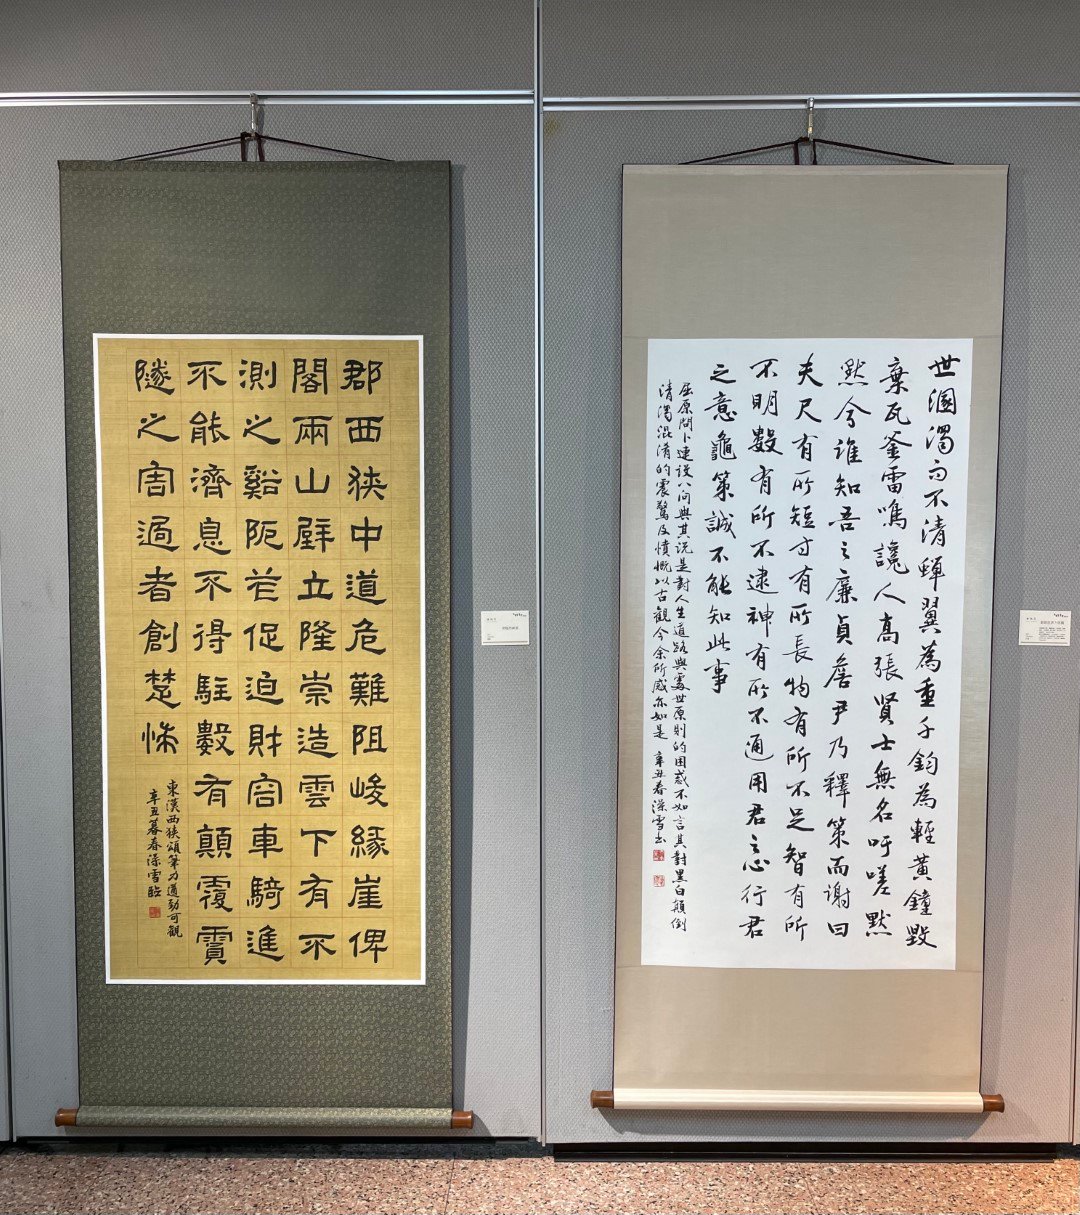 郡西狹中道危難阻峻緣崖俾
閣兩山壁立隆崇造雲下有不
測之谿阨苲促迫財容車騎進
不能濟息不得駐數有顛覆霣
隧之害過者創楚惴
東漢西狹頌筆力遒勁可觀
辛丑暮春澡雪臨
世溷濁而不清蟬翼為重千鈞為輕黃鐘毀
棄瓦釜雷鳴讒人高張賢士無名吁嗟默
默兮誰知吾之廉貞詹尹乃釋策而謝曰
夫尺有所短寸有所長物有所不足智有所
不明數有所不逮神有所不通用君之心行君
之意龜策誠不能知此事
屈原問卜連設八问與其说是對人生道路與處世原則的困惑不如言其對黑白顛倒
清濁混淆的震驚及憤慨以古觀今余所感亦如是 辛丑春澡雪书